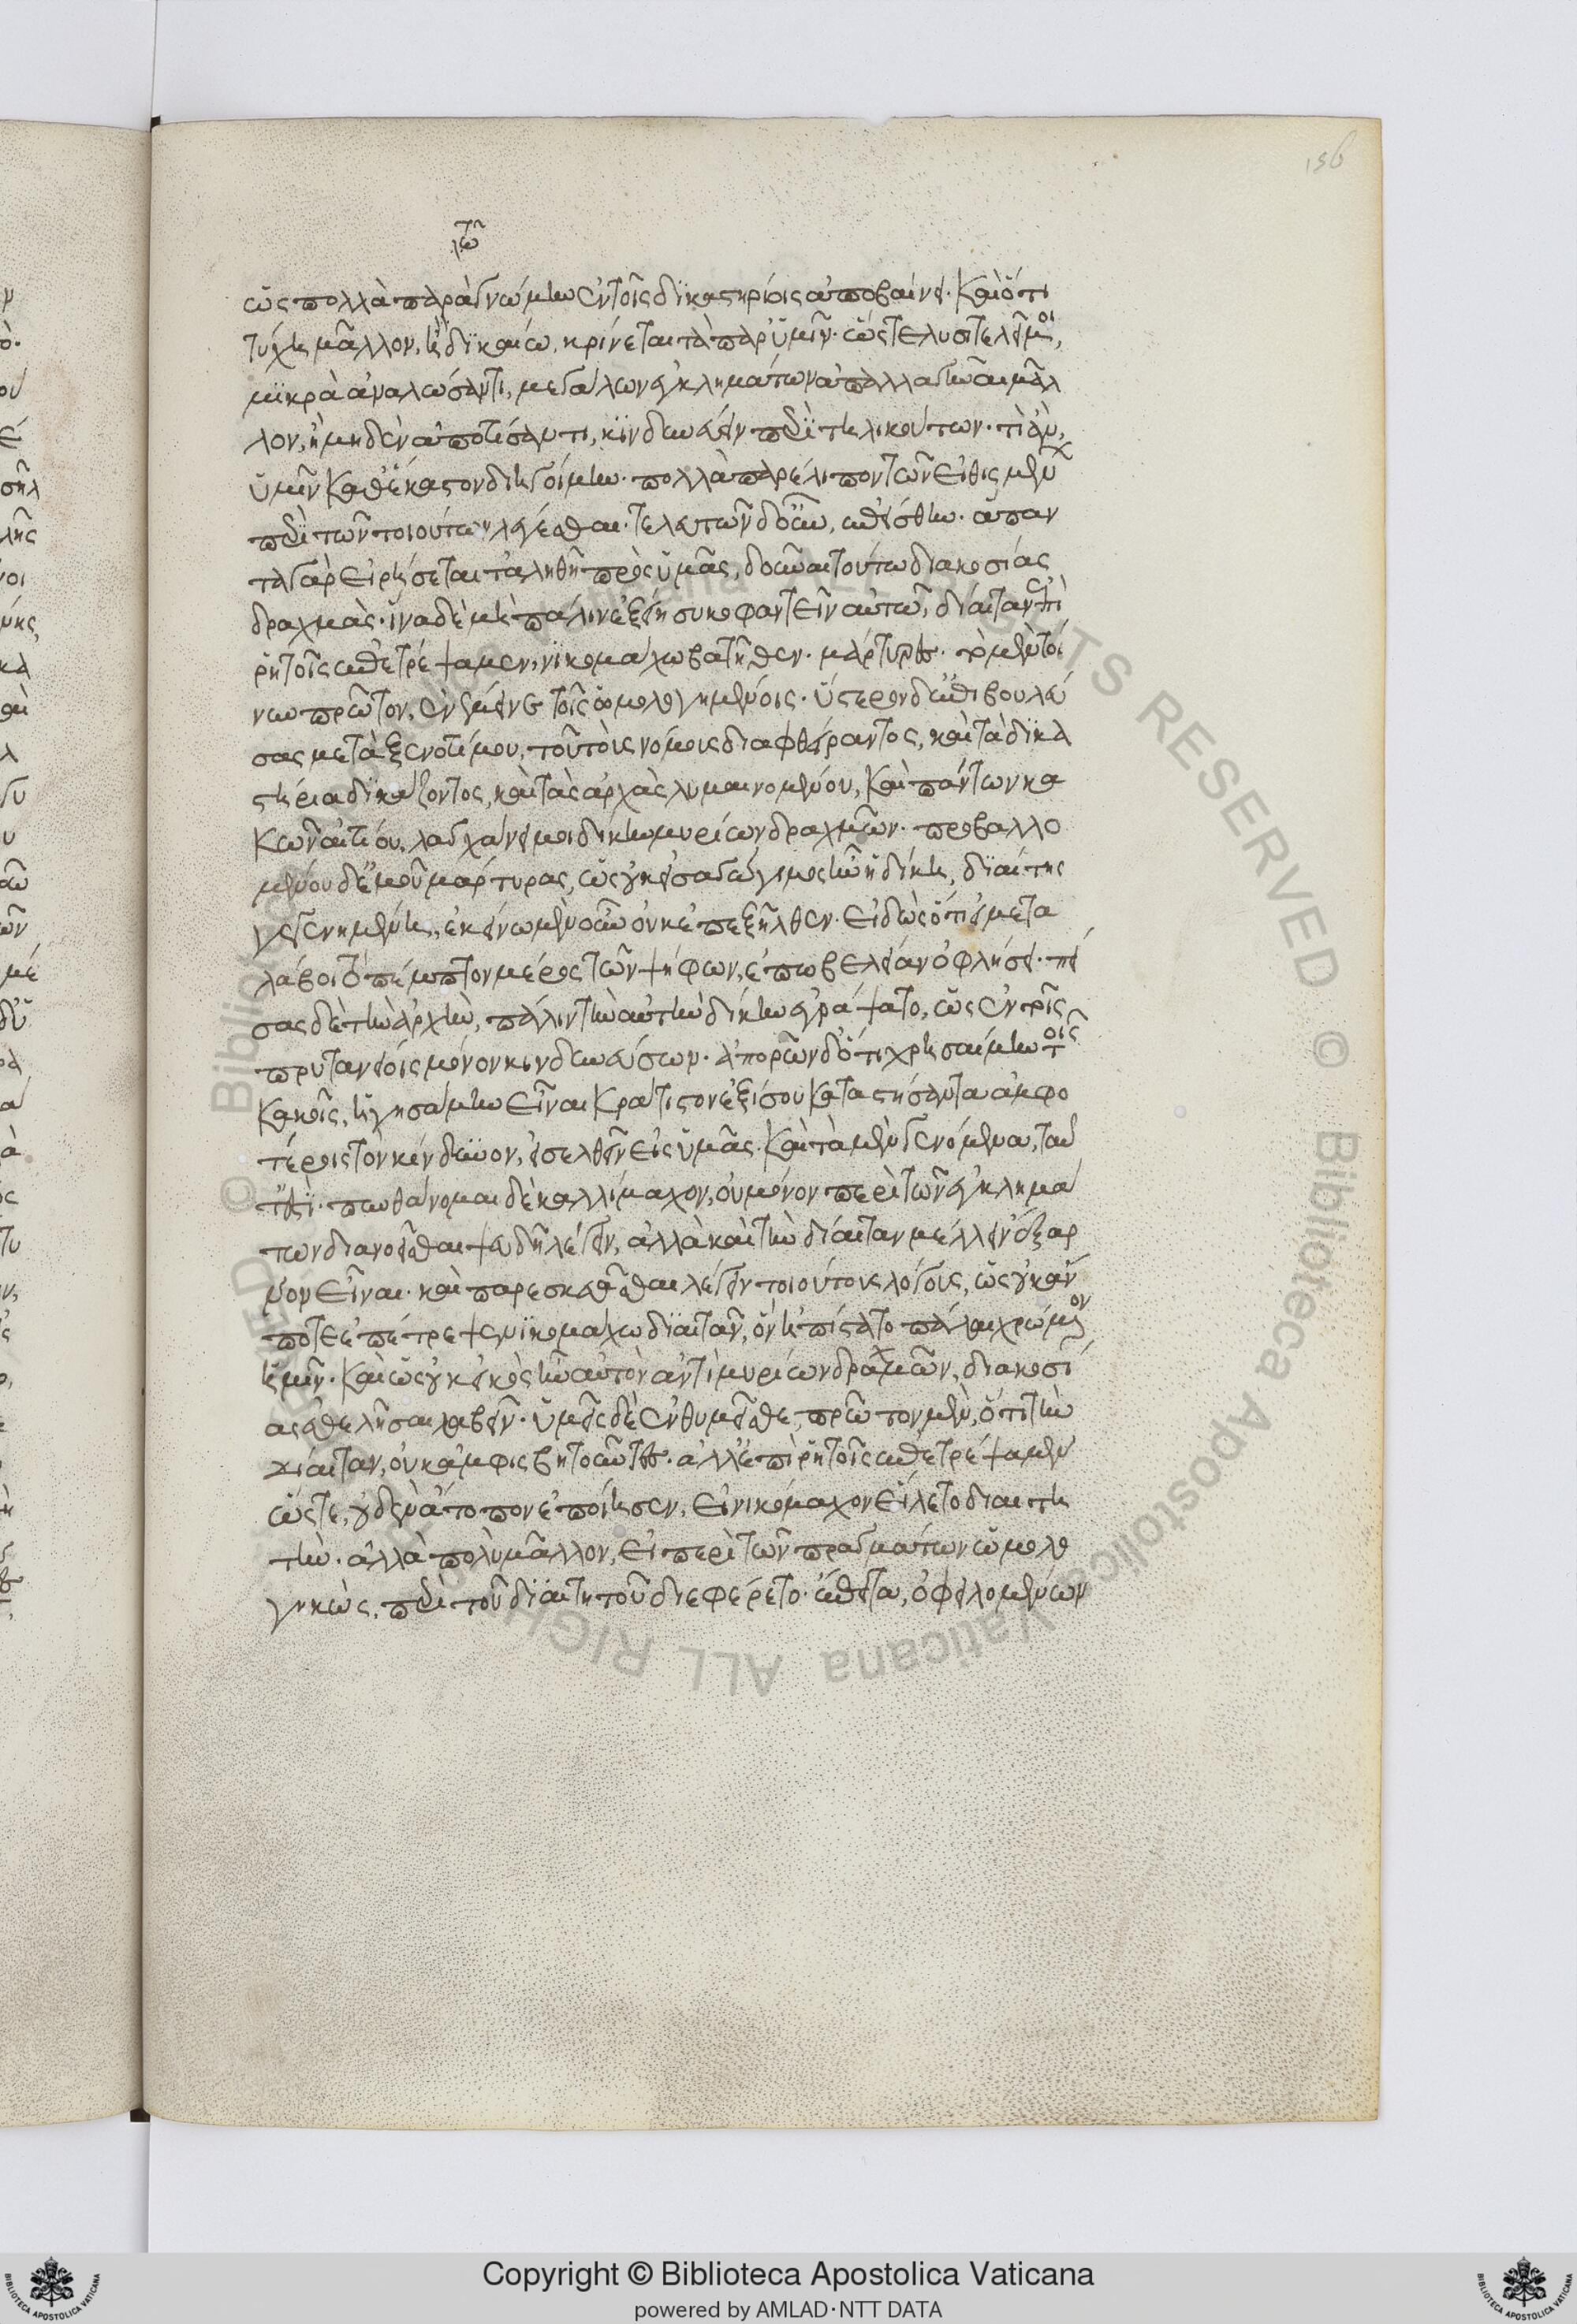 156
τῶ
ὡς πολλὰ παρὰ γνώμην ἐν τοῖς δικαστηρίοις ἀποβαίνει. καὶ ὅτι
τύχῃ μᾶλλον, ἢ δικαίω, κρίνεται τὰ παρ' ὑμῖν. ὥστε λυσιτελεῖ μοι,
μικρὰ ἀναλώσαντι, μεγάλων ἐγκλημάτων ἀπαλλαγῆναι μᾶλ
λον, ἢ μηδὲν ἀποτίσαντι, κινδυνεύειν περὶ τηλικούτων. τί ἂν
ὑμῖν καθ' ἕκαστον διηγοίμην. πολλὰ παρέλιπον τῶν εἰθισμένων
περὶ τῶν τοιούτων λέγεσθαι. τελευτῶν δ' οὖν, ἐπείσθην. ἅπαν
τα γὰρ εἰρήσεται τἀληθῆ πρὸς ὑμᾶς, δοῦναι τούτω διακοσίας
δραχμάς. ἵνα δὲ μὴ πάλιν ἐξείη συκοφαντεῖν αὐτῶ, δίαιταν ἐπὶ
ῥητοῖς ἐπετρέψαμεν, νικομάχω βατῆθεν. μάρτυρες. τὸ μὲν τοί
νυν πρῶτον, ἐνέμεινε τοῖς ὡμολογημένοις. ὕστερον δ' ἐπιβουλεύ
σας μετὰ ξενοτίμου, τοῦ τοὺς νόμους διαφθείραντος, καὶ τὰ δικα
στήρια δικάζοντος, καὶ τὰς ἀρχὰς λυμαινομένου, καὶ πάντων κα
κῶν αἰτίου, λαγχάνει μοι δίκην μυρίων δραχμῶν. προβαλλο
μένου δ' ἐμοῦ μάρτυρας, ὡς οὐκ εἰσαγώγιμος ἦν ἡ δίκη, διαίτης
γεγενημένης, ἐκείνω μὲν οὖν οὐκ ἐπεξῆλθεν. εἰδὼς ὅτι εἰ μετα
λάβοι τὸ πέμπτον μέρος τῶν ψήφων, ἐπωβελείαν ὀφλήσει. πεί
σας δὲ τὴν ἀρχὴν, πάλιν τὴν αὐτὴν δίκην ἐγράψατο, ὡς ἐν τοῖς
πρυτανείοις μόνον κινδυνεύσων. ἀπορῶν δ' ὅτι χρησαίμην τοῖς
κακοῖς, ἡγησάμην εἶναι κράτιστον ἐξ ἴσου καταστήσαντα ἀμφο
τέροις τὸν κίνδυνον, εἰσελθεῖν εἰς ὑμᾶς. καὶ τὰ μὲν γενόμενα, ταῦ
τ' ἐστί. πυνθάνομαι δὲ καλλίμαχον, οὐ μόνον περὶ τῶν ἐγκλημά
των διανοεῖσθαι ψευδῆ λέγειν, ἀλλὰ καὶ τὴν δίαιταν μέλλειν ἔξαρ
νον εἶναι. καὶ παρεσκευᾶσθαι λέγειν τοιούτους λόγους, ὡς οὐκ ἄν
ποτε ἐπέτρεψε νικομάχω δίαιταν, ὃν ἠπίστατο πάλαι χρώμενον
ἡμῖν. καὶ ὡς οὐκ εἰκὸς ἦν αὐτὸν ἀντὶ μυρίων δραχμῶν, διακοσί
ας ἐθελῆσαι λαβεῖν. ὑμεῖς δὲ ἐνθυμεῖσθε, πρῶτον μὲν, ὅτι τὴν
δίαιταν, οὐκ ἀμφισβητοῦντες. ἀλλ' ἐπὶ ῥητοῖς ἐπετρέψαμεν
ὥστε, οὐδὲν ἄτοπον ἐποίησεν, εἰ νικόμαχον εἵλετο διαιτη
τήν. ἀλλὰ πολὺ μᾶλλον, εἰ περὶ τῶν πραγμάτων ὡμολο
γηκὼς, περὶ τοῦ διαιτητοῦ διεφέρετο. ἔπειτα, ὀφειλομένων
Copyright © Biblioteca Apostolica Vaticana
powered by AMLAD·NTT DATA